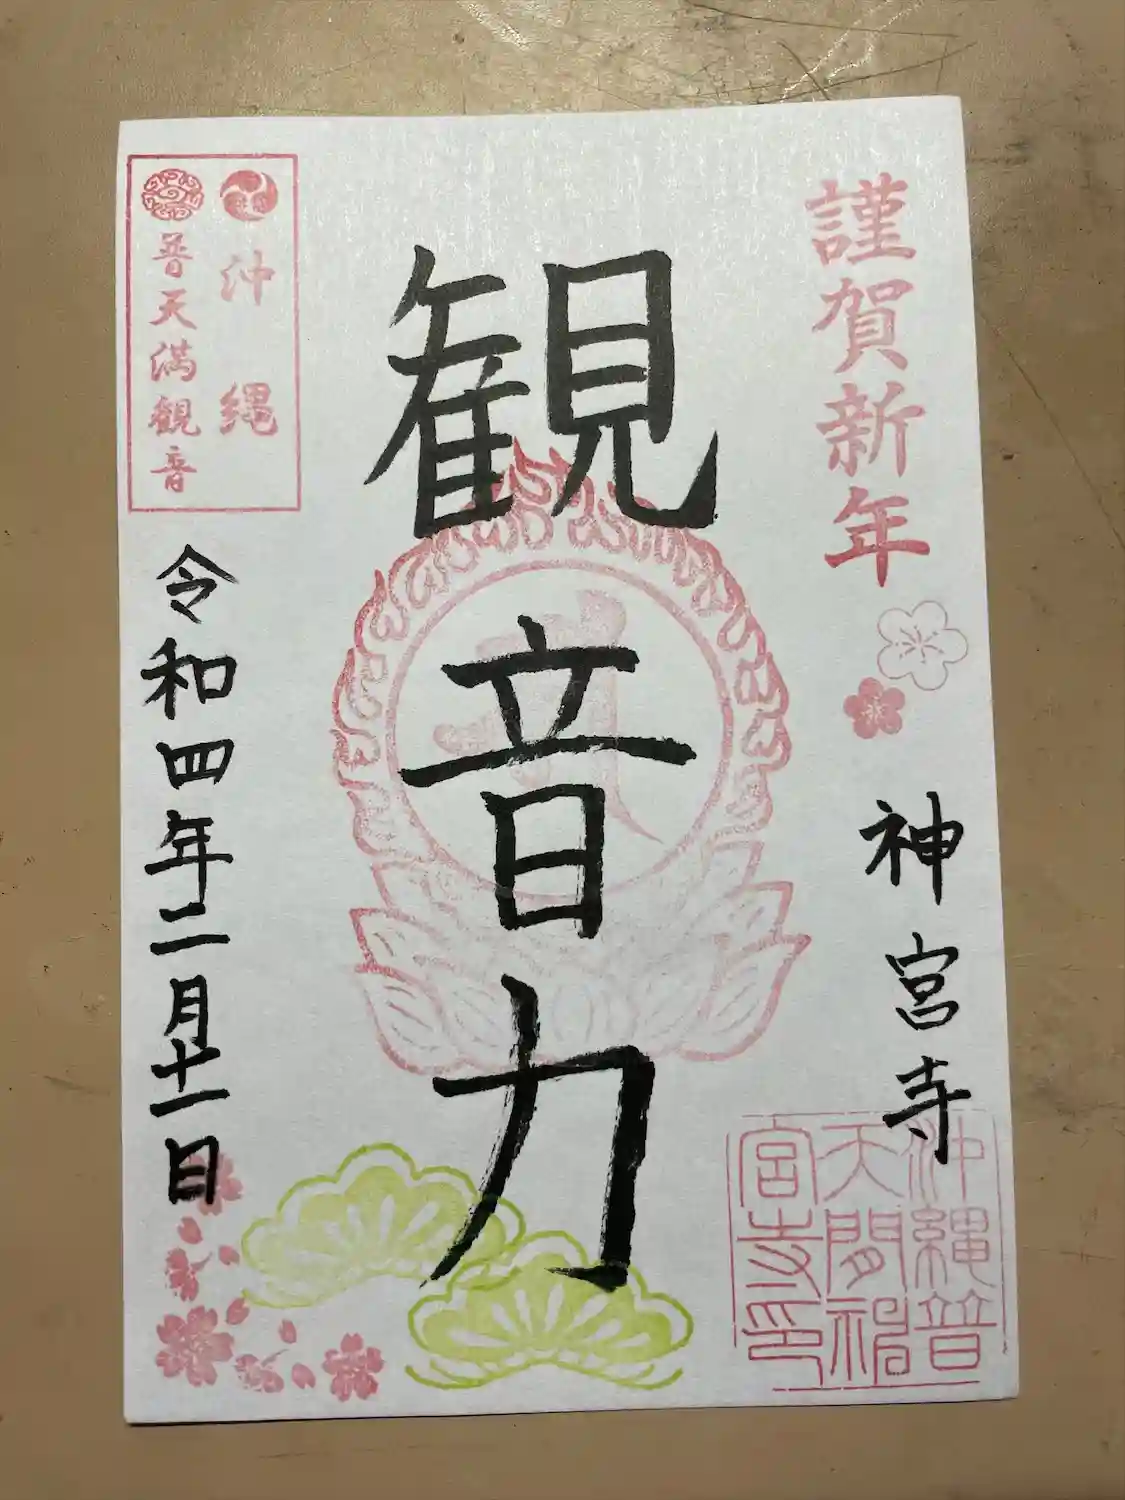 謹賀新年
神宮寺
観音力
沖縄
普天満観音
令和四年二月十一日
沖縄普
天間神
宮寺印